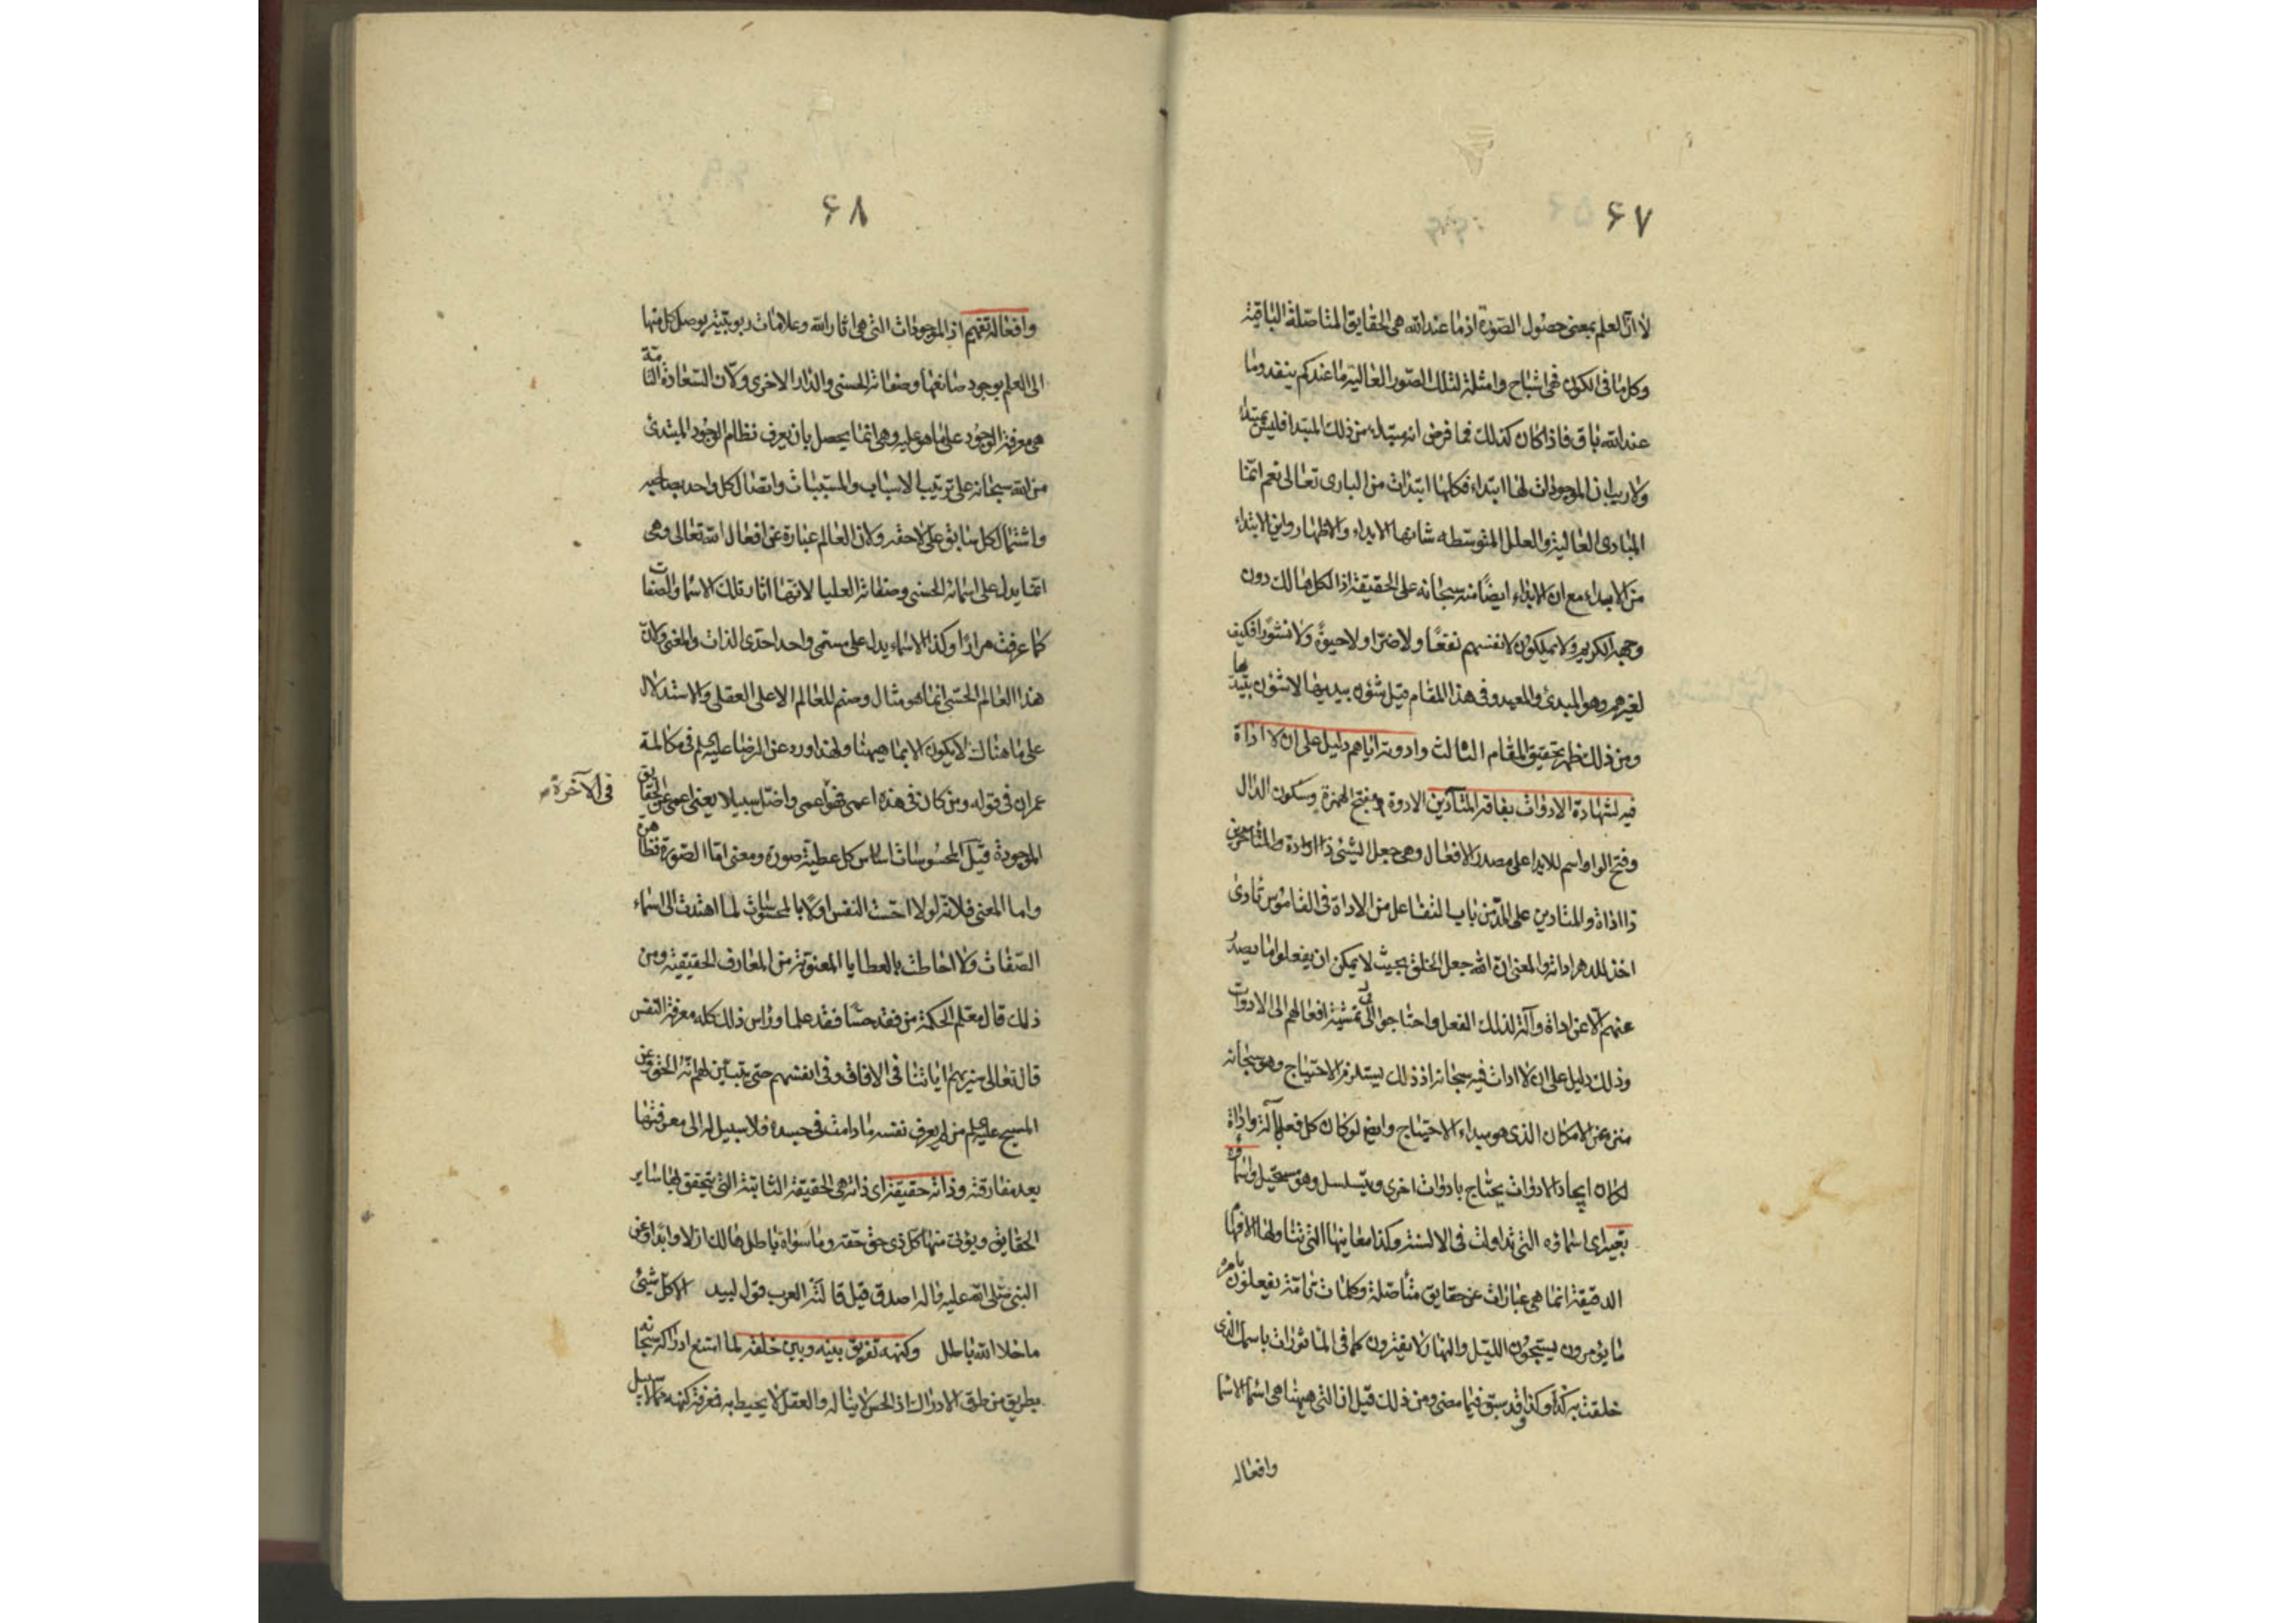 ۶۷
لا ان العلم بمعنى حصول الصورة اذ ما عند الله هى الحقايق المتاصلة الباقية
وكل ما فى الكون فهى اشباح وامثلة لتلك الصور العالية ما عندكم ينفد وما
عند الله باق فاذا كان كذلك فما فرض انه مبتدء من ذلك المبتدا فليس بمبتدا
ولا ريب ان الموجودات لها ابتداء فكلها ابتدات من البارى تعالى نعم انما
المبادى العالية والعلل المتوسطه شانها الابداء والاظهار واين الابتداء
من الابداء مع ان الابداء ايضا منه سبحانه على الحقيقة اذ الكل هالك دون
وجهه الكريم ولا يملكون لانفسهم نفعا ولا ضرا ولا حيوة ولا نشورا فكيف
لغيرهم وهو المبدئ والمعيد وفى هذا المقام قيل شؤن يبديها لا شؤن يبتديها
ومن ذلك ظهر تحقيق المقام الثالث وادوته اياهم دليل على ان لا اداة
فيه لشهادة الادوات بفاقة المتأدين الادوة بفتح الهمزة وسكون الدال
وفتح الواو اسم للايداء على مصدر الافعال وهى جعل الشئ ذا اداة والمتاخرين
ذا اداة والمتادين على المد من باب التفاعل من الاداة فى القاموس تادى
اخذ للدهر اداته والمعنى ان الله جعل الخلق بحيث لا يمكن ان يفعلوا ما يصدر
عنهم الا عن اداة وآلة لذلك الفعل واحتاجوا فى تمشية افعالهم الى الادوات
وذلك دليل على ان لا ادات فيه سبحانه اذ ذلك يستلزم الاحتياج وهو سبحانه
منزه عن الامكان الذى هو مبداء الاحتياج وايضا لو كان كل فعل بآلة واداة
لكان ايجاد الادوات يحتاج بادوات اخرى ويتسلسل وهو مستحيل واسماؤه
تعبير اى اسماؤه التى تداولت فى الالسنة وكذا معانيها التى تتناولها الافهام
الدقيقة انما هى عبارات عن حقايق متأصلة وكلمات تامة يفعلون بامره
ما يؤمرون يسبحون الليل والنهار لا يفترون كما فى الماثورات باسمك الذى
خلقت به كذا وكذا وقد سبق فيما مضى ومن ذلك قيل ان التى هيهنا هى اسماء الاسماء
وافعاله
۶۸
وافعاله تفهيم اذ الموجودات التى هى اثار الله وعلامات ربوبيته يوصل كل منها
الى العلم بوجود صانعها وصفاته الحسنى والدار الاخرى ولان السعادة التامة
هى معرفة الوجود على ما هو عليه وهى انما يحصل بان يعرف نظام الوجود المبتدئ
من الله سبحانه على ترتيب الاسباب والمسببات واتصال كل واحد بصاحبه
واشتمال كل سابق على لاحقه ولان العالم عبارة عن افعال الله تعالى وهى
انما يدل على اسمائه الحسنى وصفاته العليا لانها اثار تلك الاسماء والصفات
كما عرفت مرارا وكذا الاسماء يدل على مسمى واحد احدى الذات والمعنى ولان
هذا العالم الحسى انما هو مثال وصنم للعالم الاعلى العقلى والاستدلال
على ما هناك لا يكون الا بما هيهنا ولهذا ورد عن الرضا عليه السلم فى مكالمة
عمران فى قوله ومن كان فى هذه اعمى فهو اعمى واضل سبيلا يعنى اعمى عن الحقايق
فى الآخرة
الموجودة قيل المحسوسات اساس كل عطية صورة ومعنى اما الصورة فظاهرة
واما المعنى فلانه لولا احست النفس اولا بالمحسوسات لما اهتدت الى اسماء
الصفات ولا احاطت بالعطايا المعنوية من المعارف الحقيقية ومن
ذلك قال معلم الحكمة من فقد حسا فقد علما وراس ذلك كله معرفة النفس
قال تعالى سنريهم اياتنا فى الافاق وفى انفسهم حتى يتبين لهم انه الحق وعن
المسيح عليه السلم من لم يعرف نفسه ما دامت فى جسده فلا سبيل له الى معرفتها
بعد مفارقته وذاته حقيقة اى ذاته هى الحقيقة الثابتة التى يتحقق بها ساير
الحقايق ويؤتى منها كل ذى حق حقه وما سواه باطل هالك ازلا وابدا وعن
النبى صلى الله عليه واله اصدق قيل قالته العرب قول لبيد الا كل شئ
ما خلا الله باطل وكنهه تفريق بينه وبين خلقه لما امتنع ادراكه سبحانه
بطريق من طرق الادراك اذ الحس لا يناله والعقل لا يحيط به فمعرفة كنهه